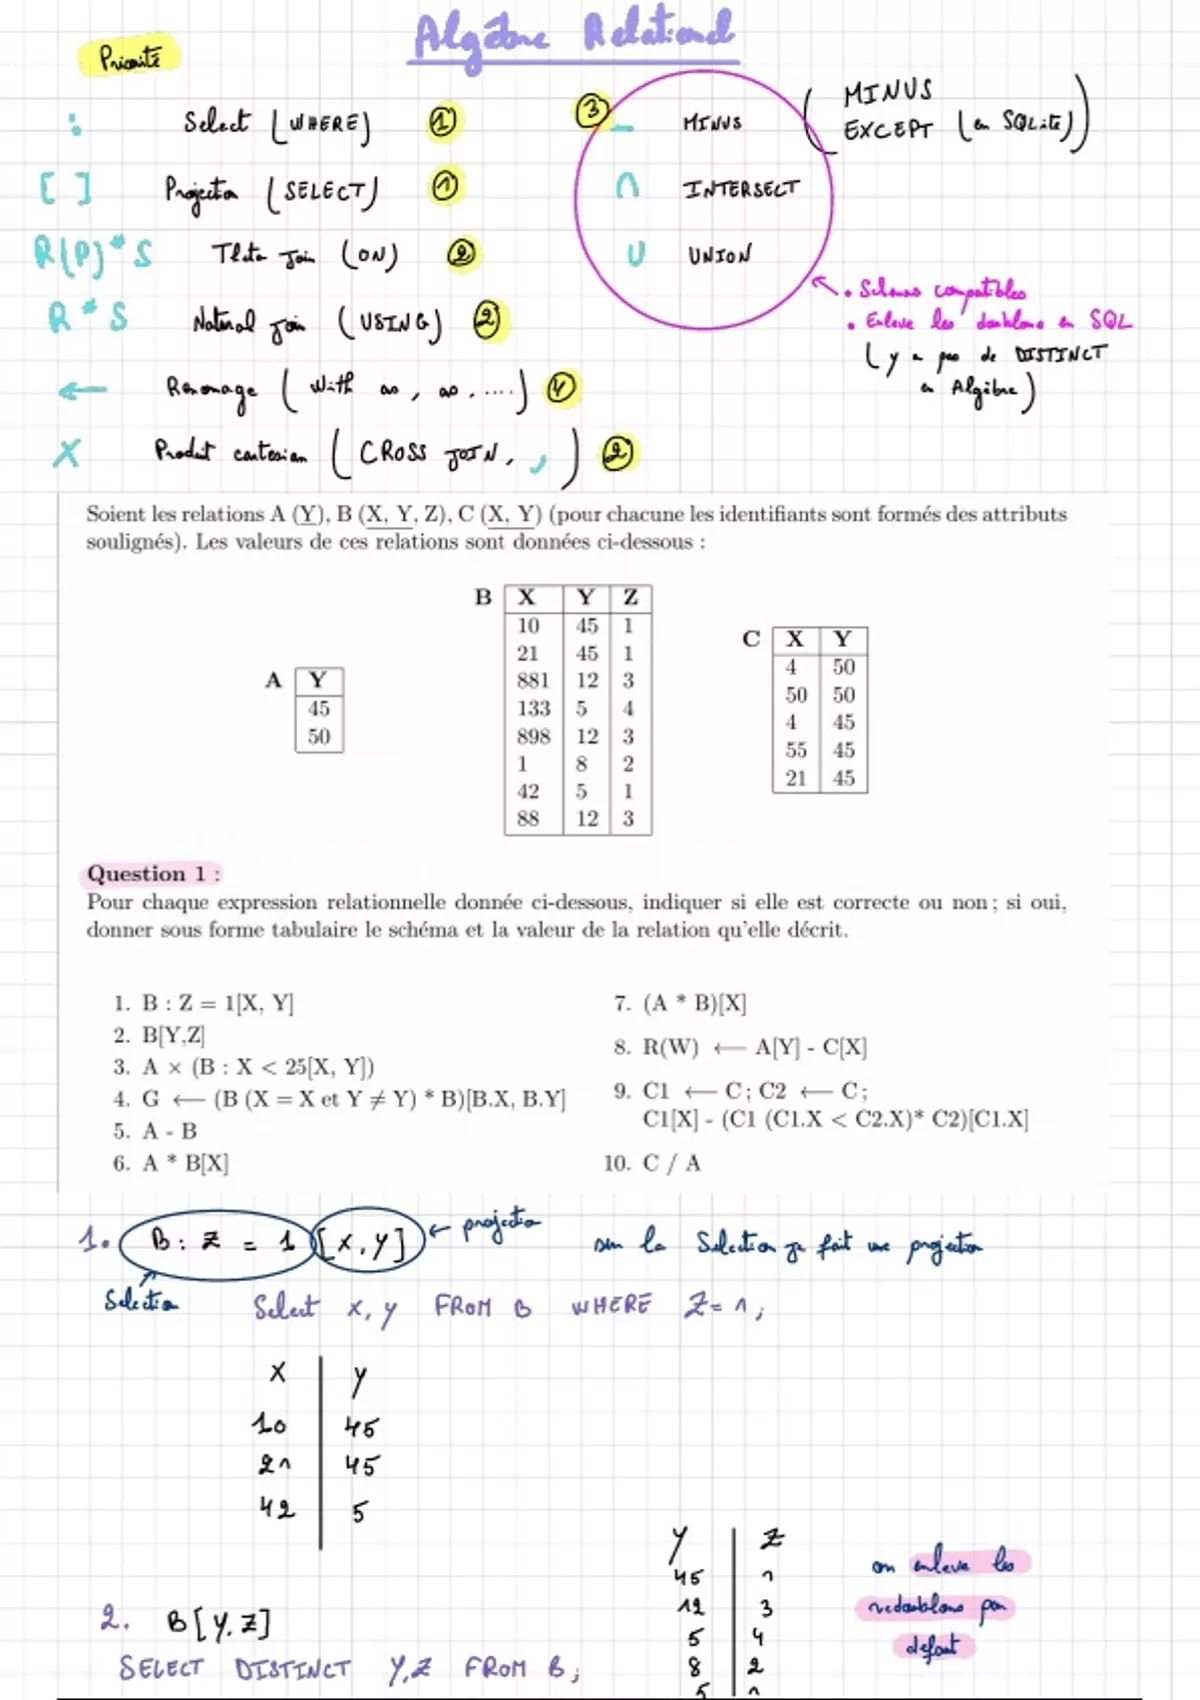 Algèbre Relationel
Priorité
: Select (WHERE) 1
[ ] Projection (SELECT) 1
R(P)*S Theta join (ON) 2
R*S Natural join (USING) 2
← Renomage (With as, as, ....) 4
X Produit cartesian (CROSS JOIN, ,) 2
3 - MINUS (MINUS
EXCEPT (en SQLite))
∩ INTERSECT
U UNION
• Schemas compatibles
• Enleve les doublons en SQL
(y a pas de DISTINCT
en Algèbre)
Soient les relations A (Y), B (X, Y, Z), C (X, Y) (pour chacune les identifiants sont formés des attributs
soulignés). Les valeurs de ces relations sont données ci-dessous :
A
Y
45
50
B
X Y Z
10 45 1
21 45 1
881 12 3
133 5 4
898 12 3
1 8 2
42 5 1
88 12 3
C
X Y
4 50
50 50
4 45
55 45
21 45
Question 1 :
Pour chaque expression relationnelle donnée ci-dessous, indiquer si elle est correcte ou non; si oui,
donner sous forme tabulaire le schéma et la valeur de la relation qu'elle décrit.
1. B : Z = 1[X, Y]
2. B[Y,Z]
3. A × (B : X < 25[X, Y])
4. G ⟵ (B (X = X et Y ≠ Y) * B)[B.X, B.Y]
5. A - B
6. A * B[X]
7. (A * B)[X]
8. R(W) ⟵ A[Y] - C[X]
9. C1 ⟵ C; C2 ⟵ C;
C1[X] - (C1 (C1.X < C2.X)* C2)[C1.X]
10. C / A
1. B : Z = 1 [X, Y] ← projection
sur la Selection je fait une projection
Selection
Select x, y FROM B WHERE Z = 1;
X Y
10 45
21 45
42 5
2. B[Y, Z]
SELECT DISTINCT Y,Z FROM B;
Y Z
45 1
12 3
5 4
8 2
5 1
on enleve les
redoublons par
defaut